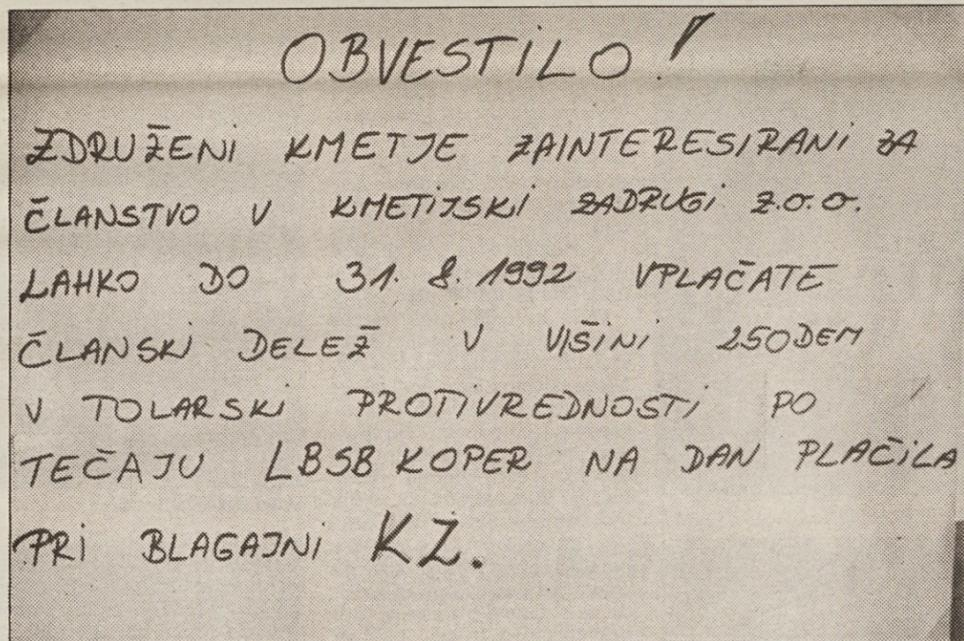 OBVESTILO!
ZDRUŽENI KMETJE ZAINTERESIRANI ZA
ČLANSTVO V KMETIJSKI ZADRUGI Z.O.O.
LAHKO DO 31. 8. 1992 VPLAČATE
ČLANSKI DELEŽ V VIŠINI 250DEM
V TOLARSKI PROTIVREDNOSTI PO
TEČAJU LBSB KOPER NA DAN PLAČILA
PRI BLAGAJNI KZ.